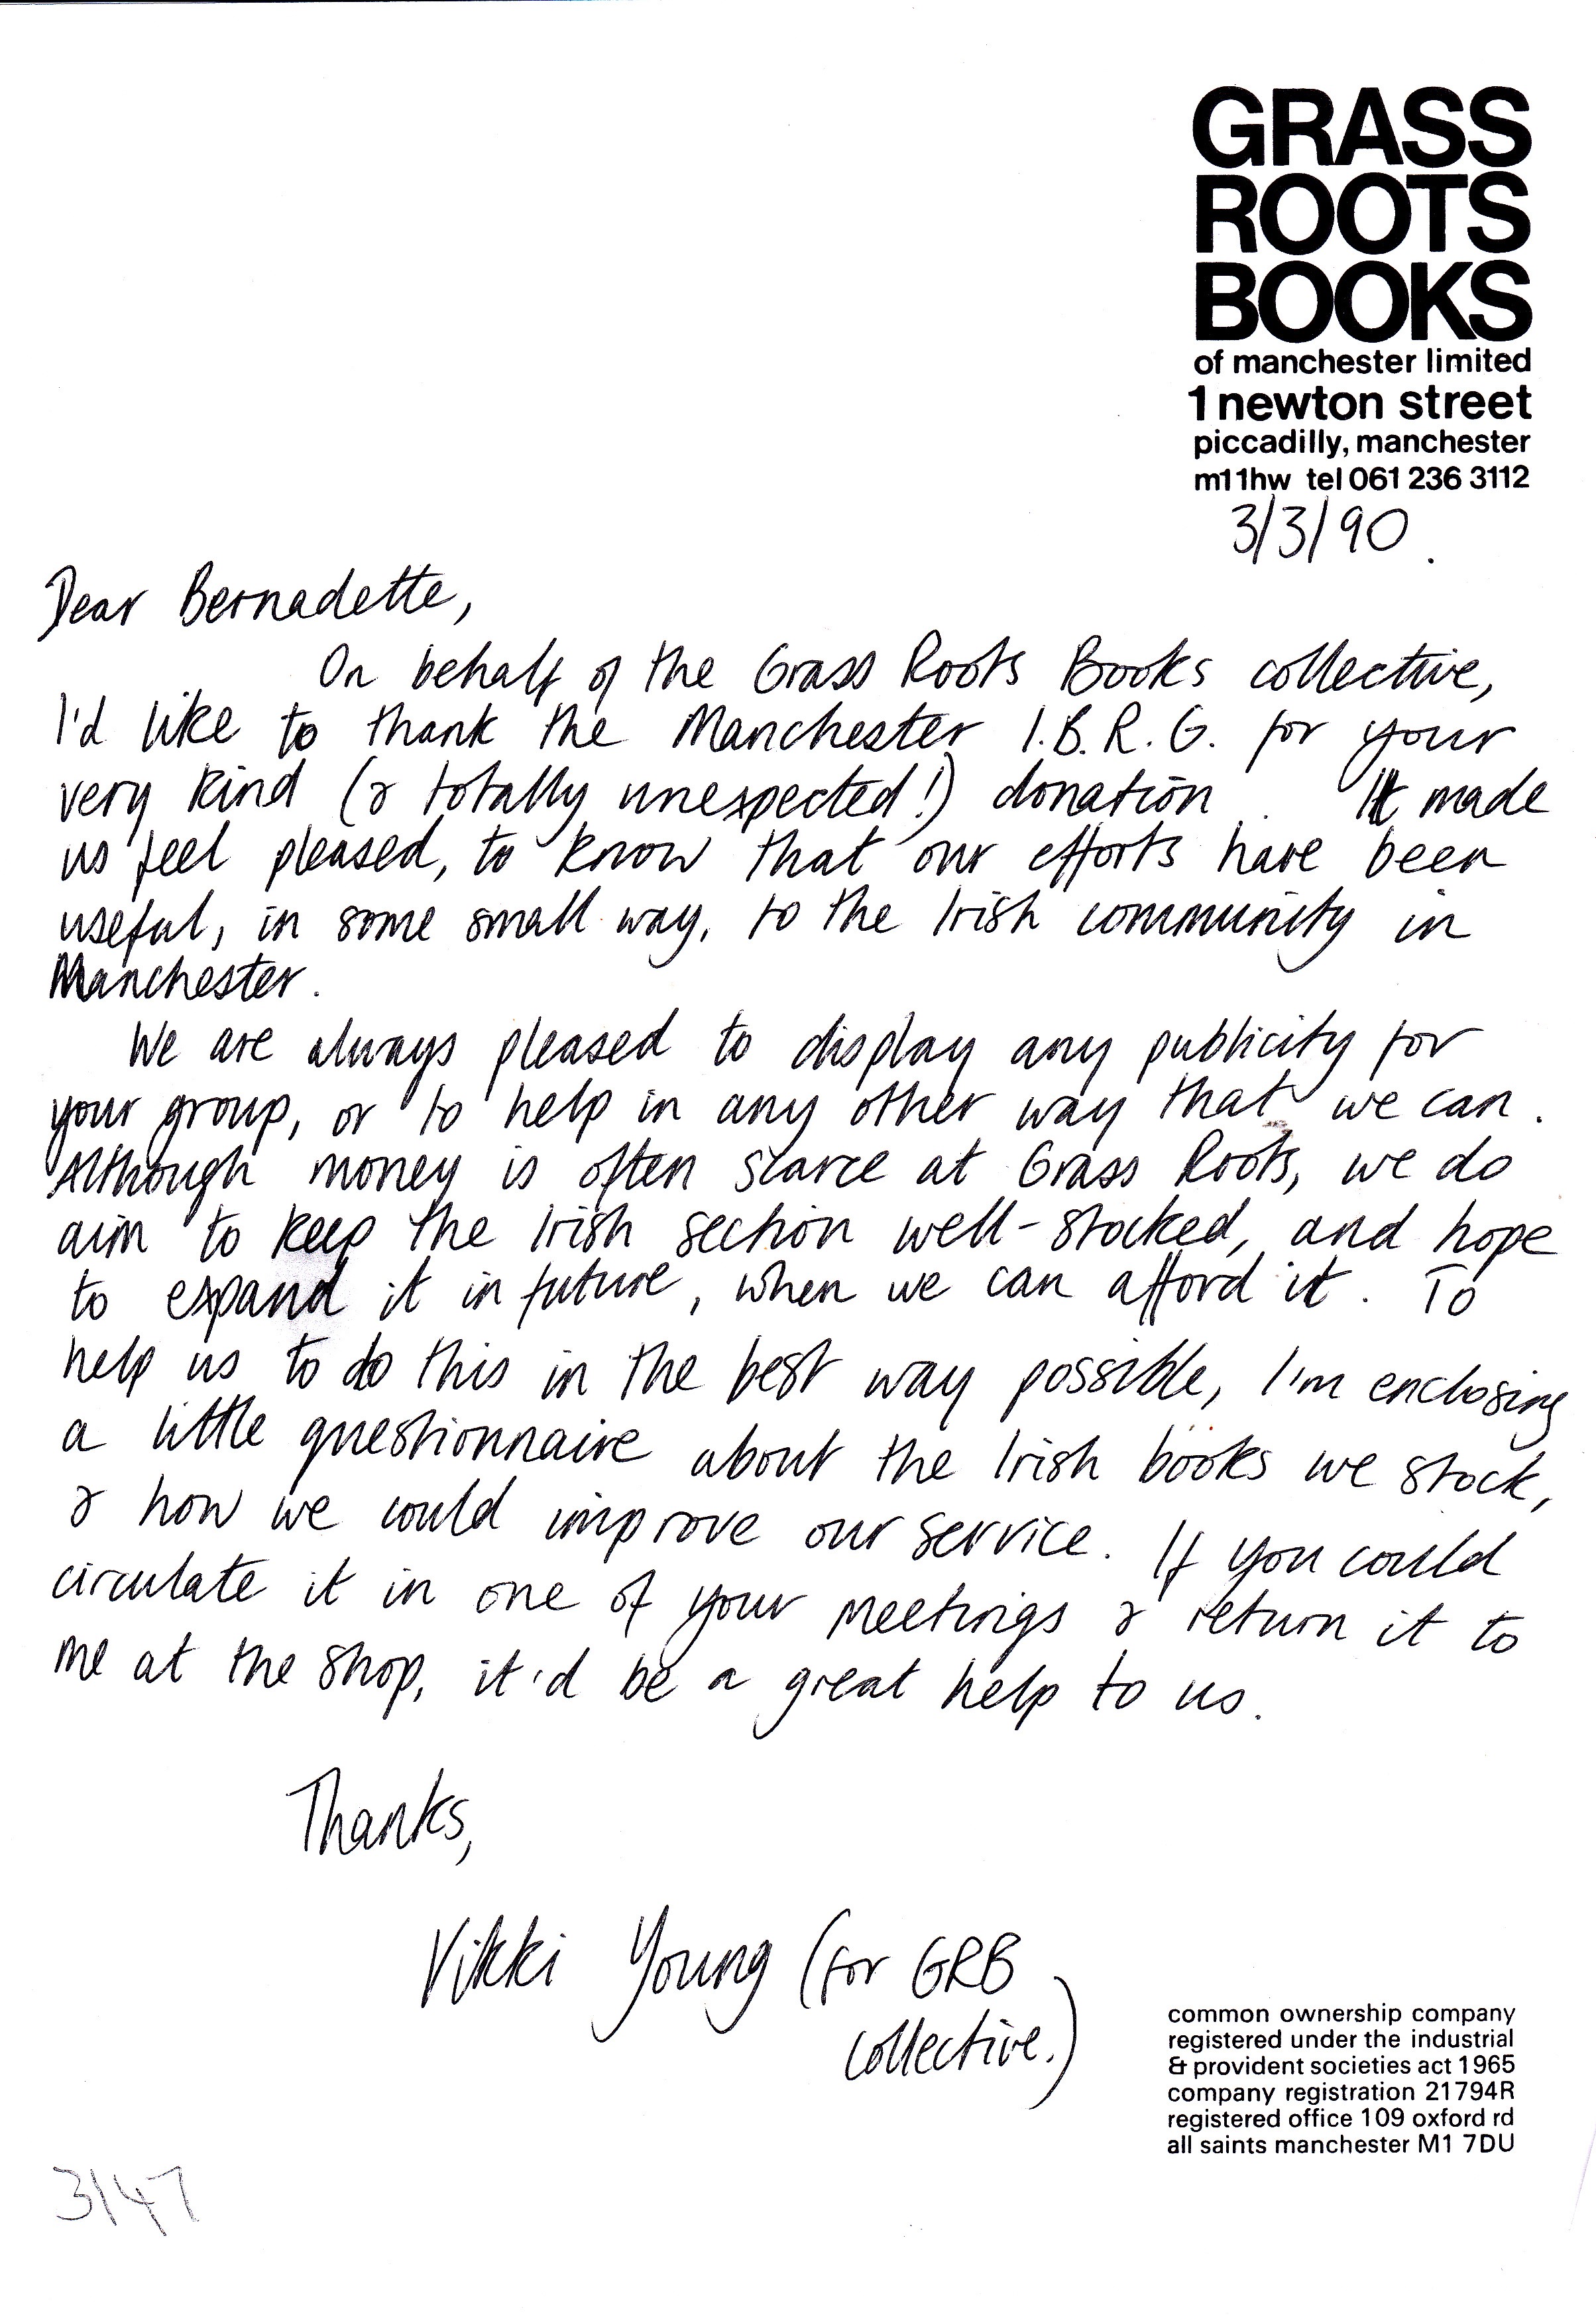 GRASS
ROOTS
BOOKS
of manchester limited
1 newton street
piccadilly, manchester
m1 1hw tel 061 236 3112
3/3/90.
Dear Bernadette,
On behalf of the Grass Roots Books collective,
I'd like to thank the Manchester I.B.R.G. for your
very kind (& totally unexpected!) donation. It made
us feel pleased, to know that our efforts have been
useful, in some small way, to the Irish community in
Manchester.
We are always pleased to display any publicity for
your group, or to help in any other way that we can.
Although money is often scarce at Grass Roots, we do
aim to keep the Irish section well-stocked, and hope
to expand it in future, when we can afford it. To
help us to do this in the best way possible, I'm enclosing
a little questionnaire about the Irish books we stock,
& how we could improve our service. If you could
circulate it in one of your meetings & return it to
me at the shop, it'd be a great help to us.
Thanks,
Vikki Young (for GRB
collective.)
common ownership company
registered under the industrial
& provident societies act 1965
company registration 21794R
registered office 109 oxford rd
all saints manchester M1 7DU
3/47